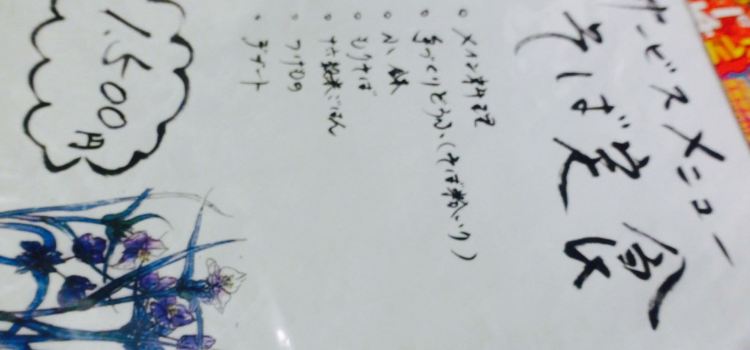 サービスメニュー
そば定食
○ メイン料理
○ 手づくりとうふ(そば粉入り)
○ 小鉢
○ もりそば
○ ごはん
○ つけもの
○ デザート
1,500円